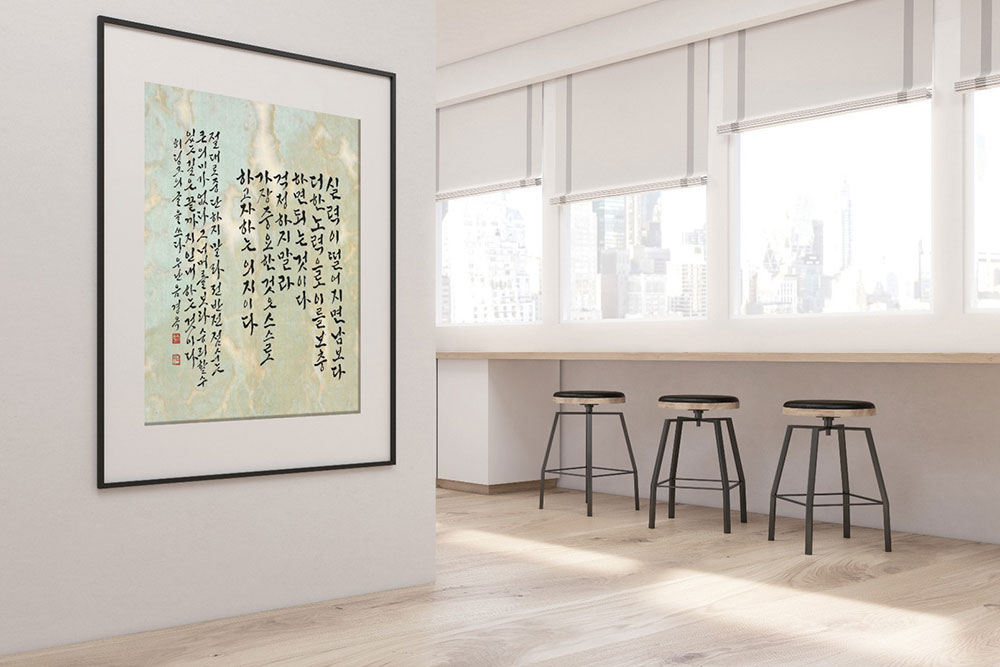 실력이떨어지면남보다
더한노력으로이를보충
하면되는것이다
걱정하지말라
가장중요한것은스스로
하고자하는의지이다
절대로중단하지말라 전반전점수는
큰의미가없다 그너머를보라 승리할수
있는길은끝까지인내하는것이다
히딩크의글을쓰다